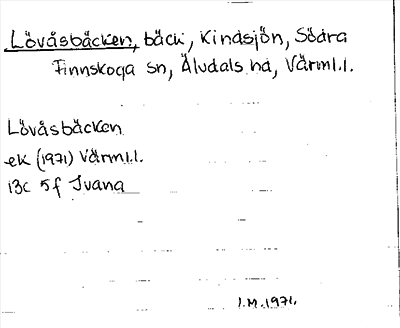 Lövåsbäcken, bäck, Kindsjön, Södra
Finnskoga sn, Älvdals hd, Värml.l.
Lövåsbäcken
ek (1971) Värml.l.
13c 5f Ivana
I.M.1971.